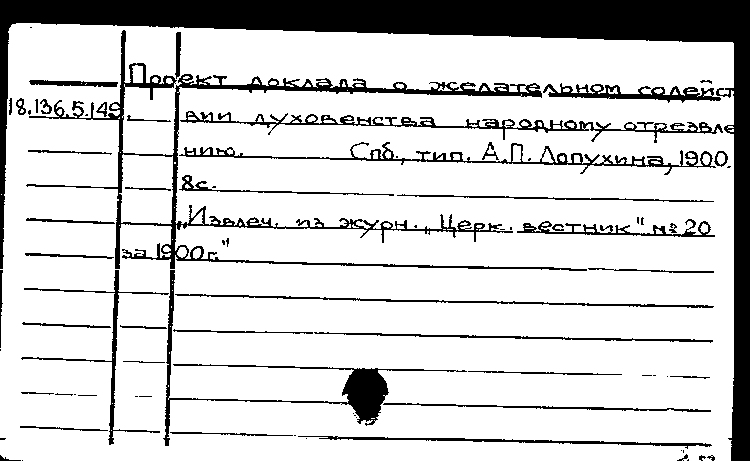 Проект доклада о желательном содейст
18.136.5.149. вии духовенства народному отрезвле
нию. Спб., тип. А.П. Лопухина, 1900.
8с.
„Извлеч. из журн. „Церк. вестник" № 20
за 1900г."